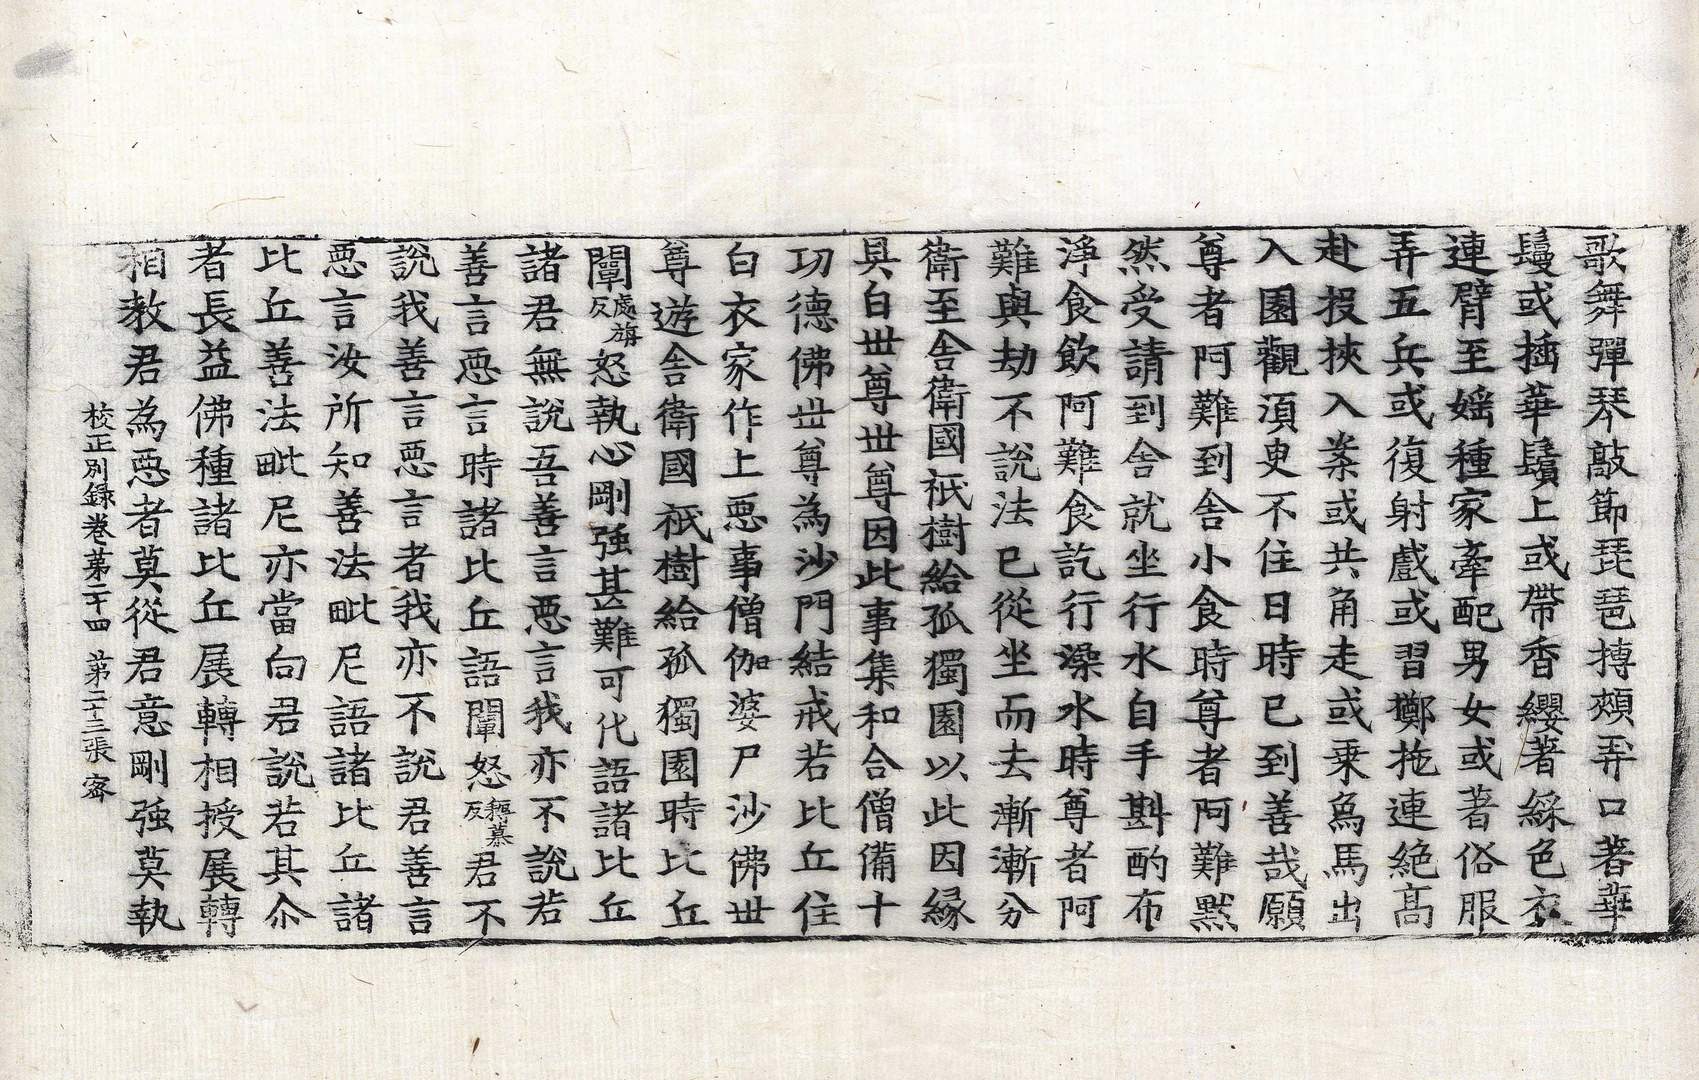 歌舞彈琴敲節琵琶摶頰弄口著華
鬘或插華鬚上或帶香纓著綵色衣
連臂至婬種家牽配男女或著俗服
弄五兵或復射戲或習擲拖連絶髙
赴投挾入桼或共角走或乗象馬出
入園觀湏臾不住日時已到善哉願
尊者阿難到舎小食時尊者阿難黙
然受請到舎就坐行水自手斟酌布
淨食飲阿難食訖行澡水時尊者阿
難與劫不說法已從坐而去漸漸分
衛至舎衛國祇樹給孤獨園以此因縁
具白世尊世尊因此事集和合僧備十
功德佛世尊為沙門結戒若比丘住
白衣家作上惡事僧伽婆尸沙佛世
尊遊舎衛國祇樹給孤獨園時比丘
闡處旃反怒執心剛強甚難可化語諸比丘
諸君無說吾善言惡言我亦不說若
善言惡言時諸比丘語闡怒稱慕反君不
說我善言惡言者我亦不說君善言
惡言汝所知善法毗尼語諸比丘諸
比丘善法毗尼亦當向君說若其尒
者長益佛種諸比丘展轉相授展轉
相教君為惡者莫從君意剛強莫執
校正別録卷第二十四 第二十三張 宻